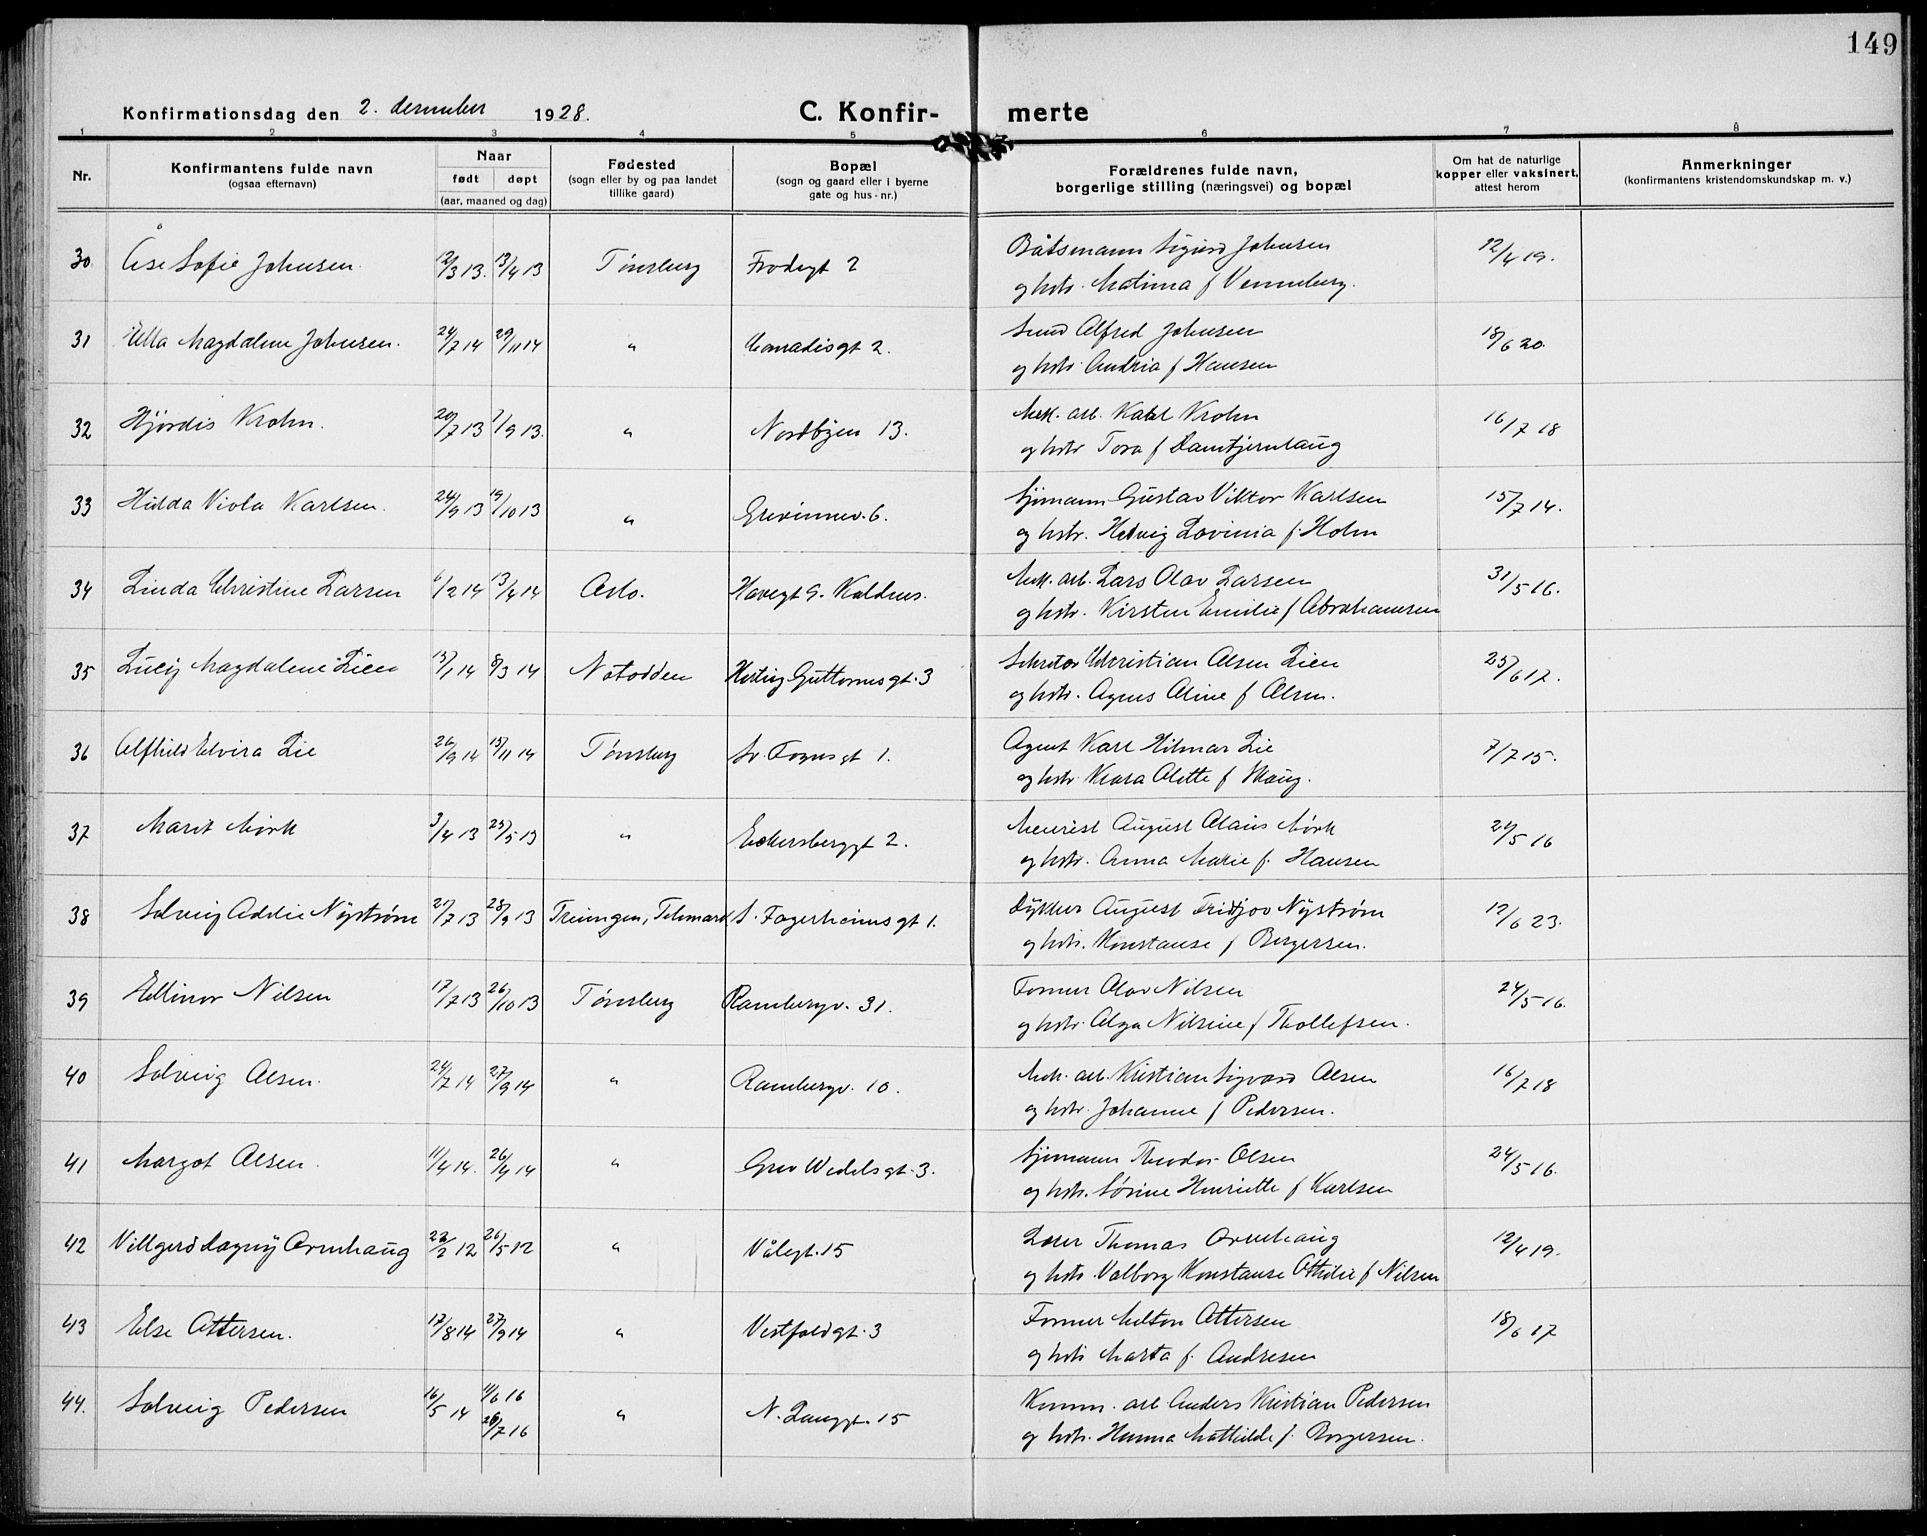 149
Konfirmationsdag den 2. desember 1928.
C. Konfir- merte
1 2 3 4 5 6 7 8
Nr.
Konfirmantens fulde navn
(ogsaa efternavn)
Naar
født døpt
(aar, maaned og dag)
Fødested
(sogn eller by og paa landet
tillike gaard)
Bopæl
(sogn og gaard eller i byerne
gate og hus-nr.)
Forældrenes fulde navn,
borgerlige stilling (næringsvei) og bopæl
Om hat de naturlige
kopper eller vaksinert,
attest herom
Anmerkninger
(konfirmantens kristendomskundskap m. v.)
30 Åse Sofie Johnsen. 12/3 13. 13/4 13 Tønsberg Frodegt 2 Båtsmann Sigurd Johnsen 12/4 19.
og hstr. Matima f Venneberg.
31 Ella Magdalene Johnsen. 24/7 14 29/11 14 " Conradisgt 2. Smed Alfred Johnsen 18/6 20.
og hstr. Andrea f Hansen
32 Hjørdis Krohn. 20/7 13 7/9 13. " Nordbyen 13. Mek. arb. Karl Krohn 16/7 18
og hstr Tora f Damtjernhaug
33 Hulda Viola Karlsen. 24/9 13 19/10 13 " Grevinnev. 6. Sjømann Gustav Viktor Karlsen 15/7 14.
og hstr. Hedvig Lovinia f. Holm
34 Linda Christine Larsen 6/2 14 13/4 14 Oslo. Havegt 9. Kaldnes. Mek. arb. Lars Olav Larsen 31/5 16.
og hstr. Kirsten Emilie f Abrahamsen
35 Lucy Magdalene Lien 15/1 14 8/3 14 Notodden Hertug Guttormsgt. 3 Christian Olsen Lien 25/6 17.
og hstr. Agnes Oline f Olsen.
36 Alfhild Elvira Lie 26/9 14 15/11 14 Tønsberg Sv. Foynsgt 1. Agent Karl Hilmar Lie 7/7 15.
og hstr. Klara Olette f Haug.
37 Marit Mørk 3/4 13 25/5 13 " Eckersberggt 2. August Olaus Mørk 24/5 16
og hstr. Anna Marie f. Hansen
38 Solveig Addie Nystrøm 27/7 13 28/9 13 Treungen, Telemark S. Fagerheimsgt 1. Dykker August Fridtjov Nystrøm 12/6 23.
og hstr. Konstanse f Bergersen.
39 Ellinor Nilsen 17/7 13 26/10 13 Tønsberg Rambergv. 31. Former Olav Nilsen 24/5 16.
og hstr. Olga Nilsine f Thollefsen.
40 Solveig Olsen. 24/7 14 27/9 14 " Rambergv. 10. Mek. arb. Kristian Sigvard Olsen 16/7 18
og hstr. Johanne f Pedersen.
41 Margot Olsen. 11/4 14. 26/4 14 " Grev Wedelsgt. 3. Sjømann Theodor Olsen 24/5 16.
og hstr. Sørine Henriette f Karlsen
42 Villgerd Dagny Ormhaug 22/2 12 26/5 12 " Vålegt. 15 Thomas Ormhaug 12/4 19.
og hstr. Valborg Konstanse Othilie f Nilsen
43 Else Ottersen. 17/8 14 27/9 14 " Vestfoldgt. 3 Former Milton Ottersen 18/6 17
og hstr Marta f. Andresen
44. Solveig Pedersen 16/5 14 11/6 16 " N. Langgt. 15 Komm. arb Anders Kristian Pedersen
26/7 16 og hstr. Hanna Mathilde f. Borgersen.